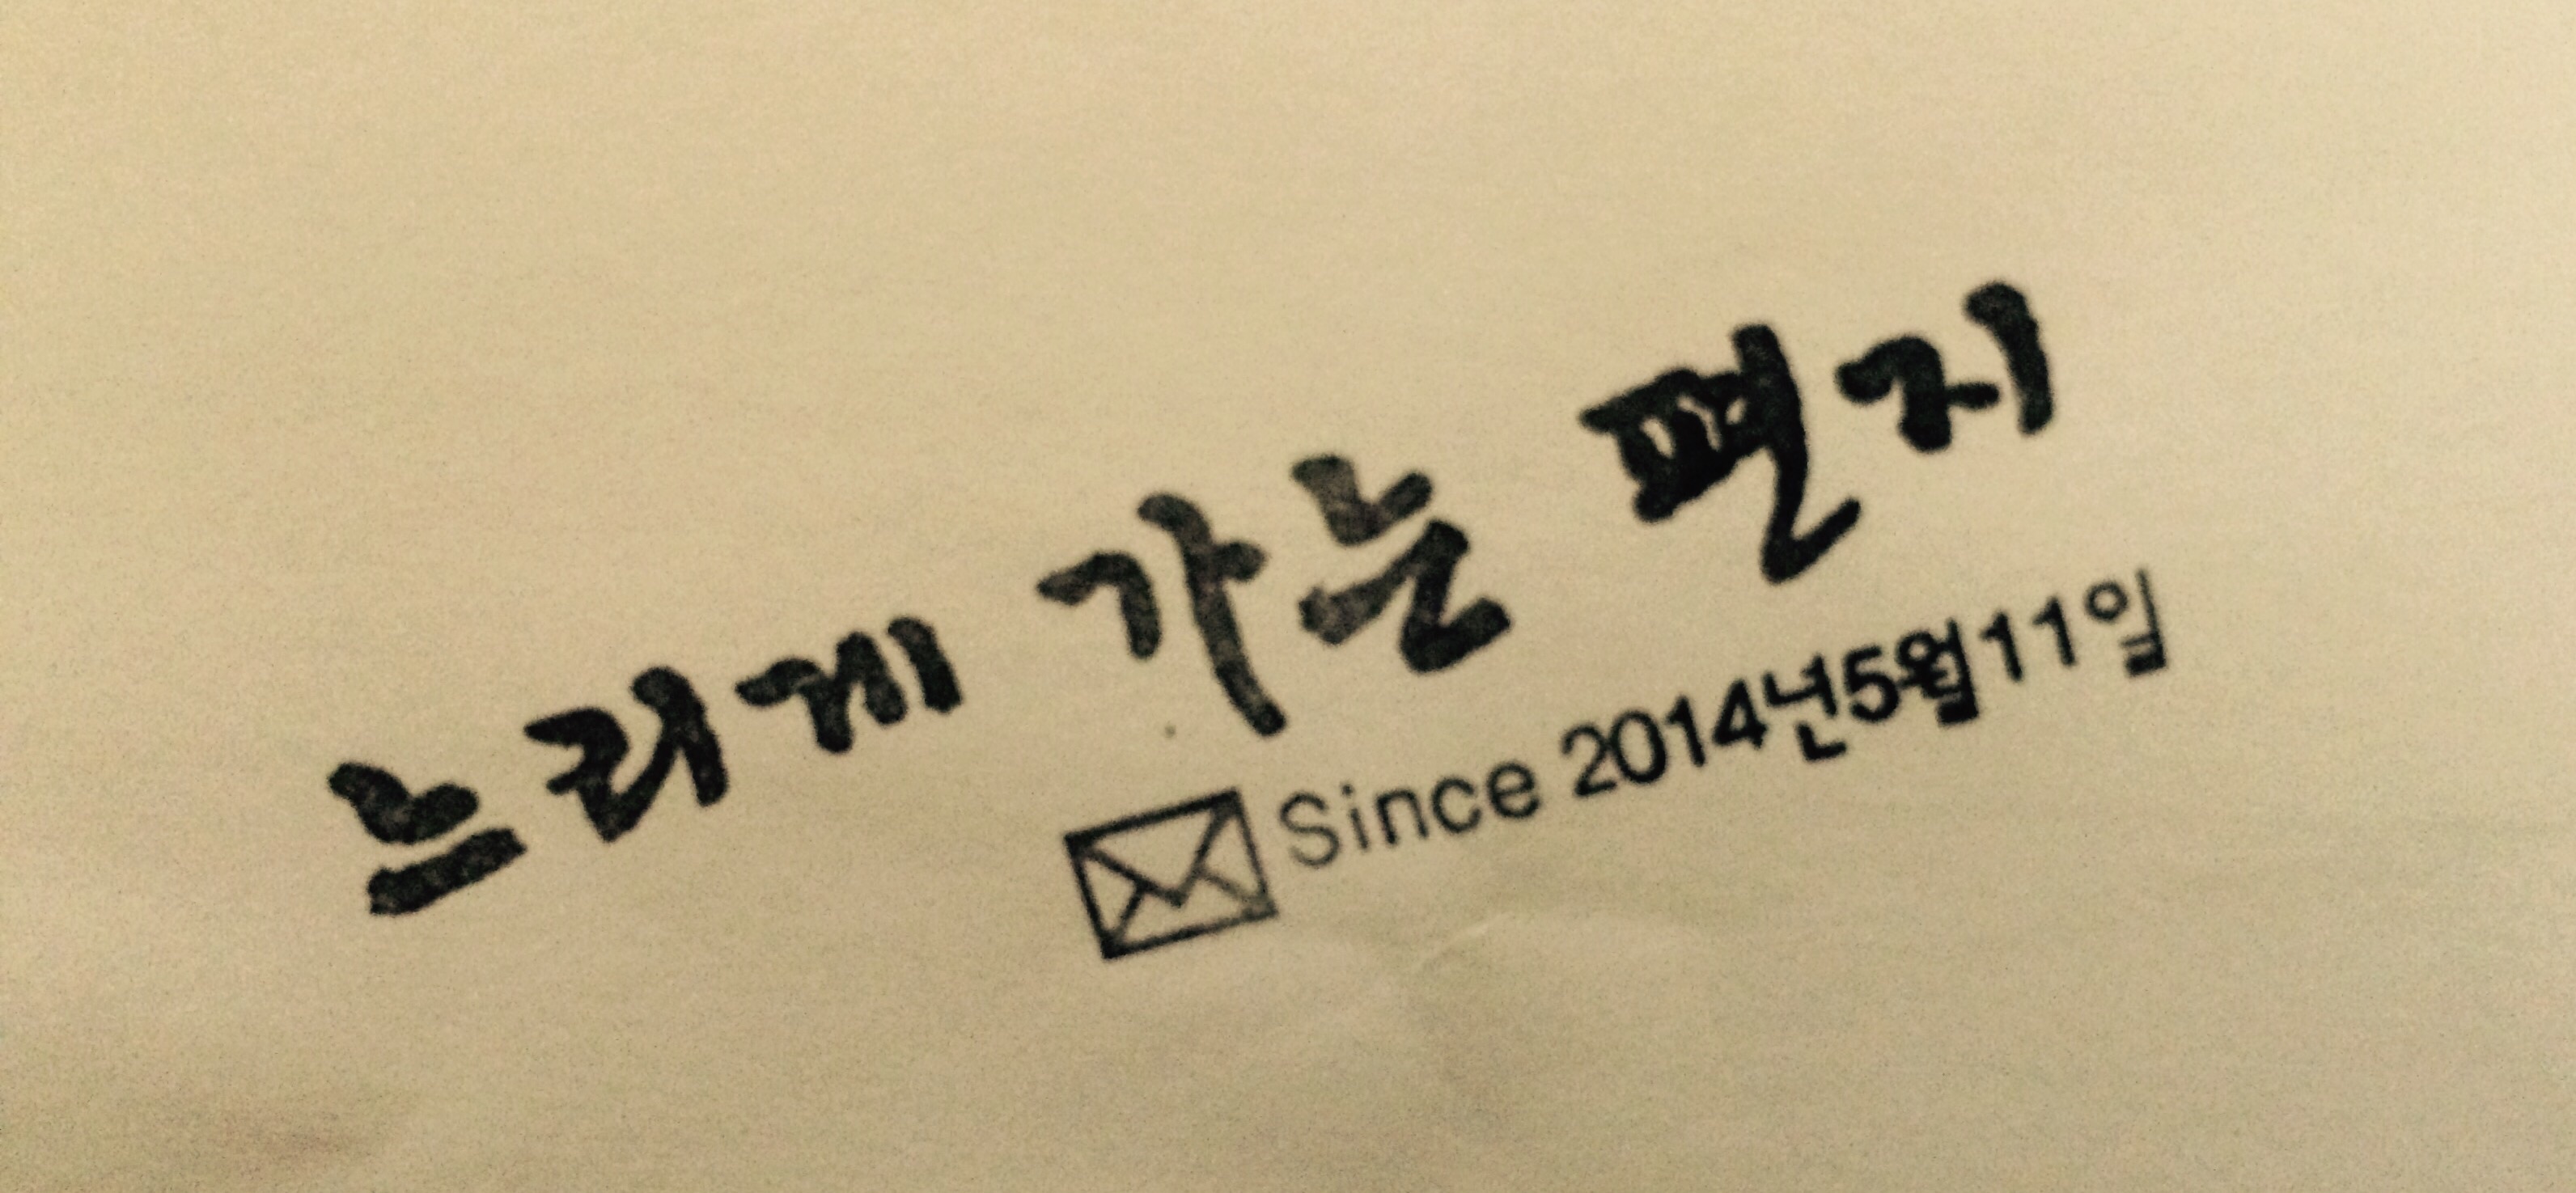 느리게 가는 편지
Since 2014년5월11일